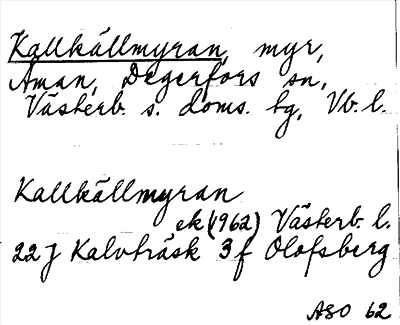 Kallkällmyran, myr,
Åman, Degerfors sn,
Västerb. s. doms. tg, Vb. l.
Kallkällmyran
ek (1962) Västerb. l.
22 J Kalvträsk 3 f Olofsberg
ASO 62